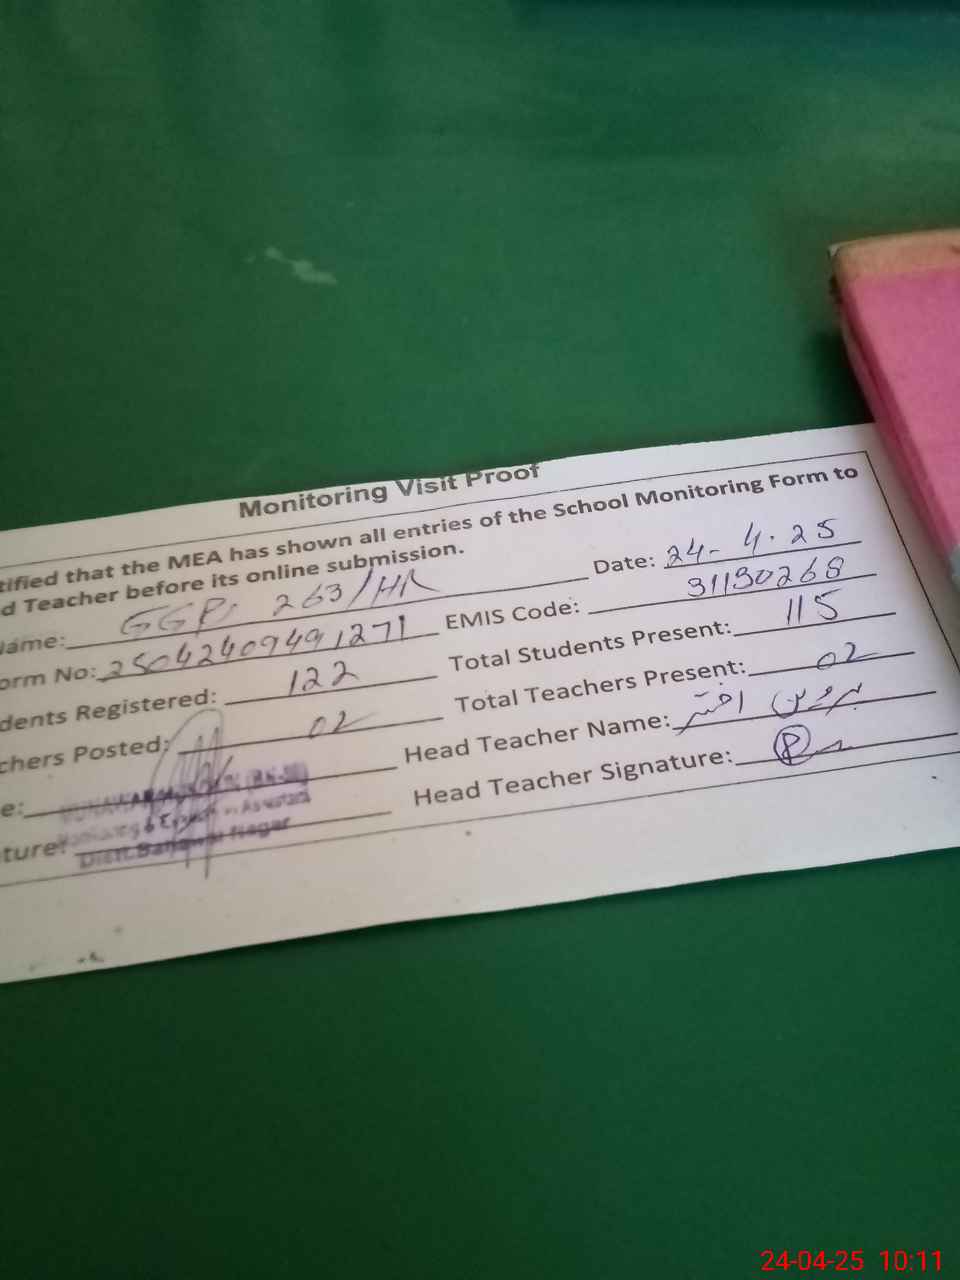 Monitoring Visit Proof
tified that the MEA has shown all entries of the School Monitoring Form to
d Teacher before its online submission.
Name: GGPS 263/HR Date: 24-4.25
orm No: 25042409491271 EMIS Code: 31130268
dents Registered: 122 Total Students Present: 115
chers Posted: 02 Total Teachers Present: 02
e: Head Teacher Name: پروین اختر
ture: Head Teacher Signature:
Distt. Bahawal Nagar
24-04-25 10:11